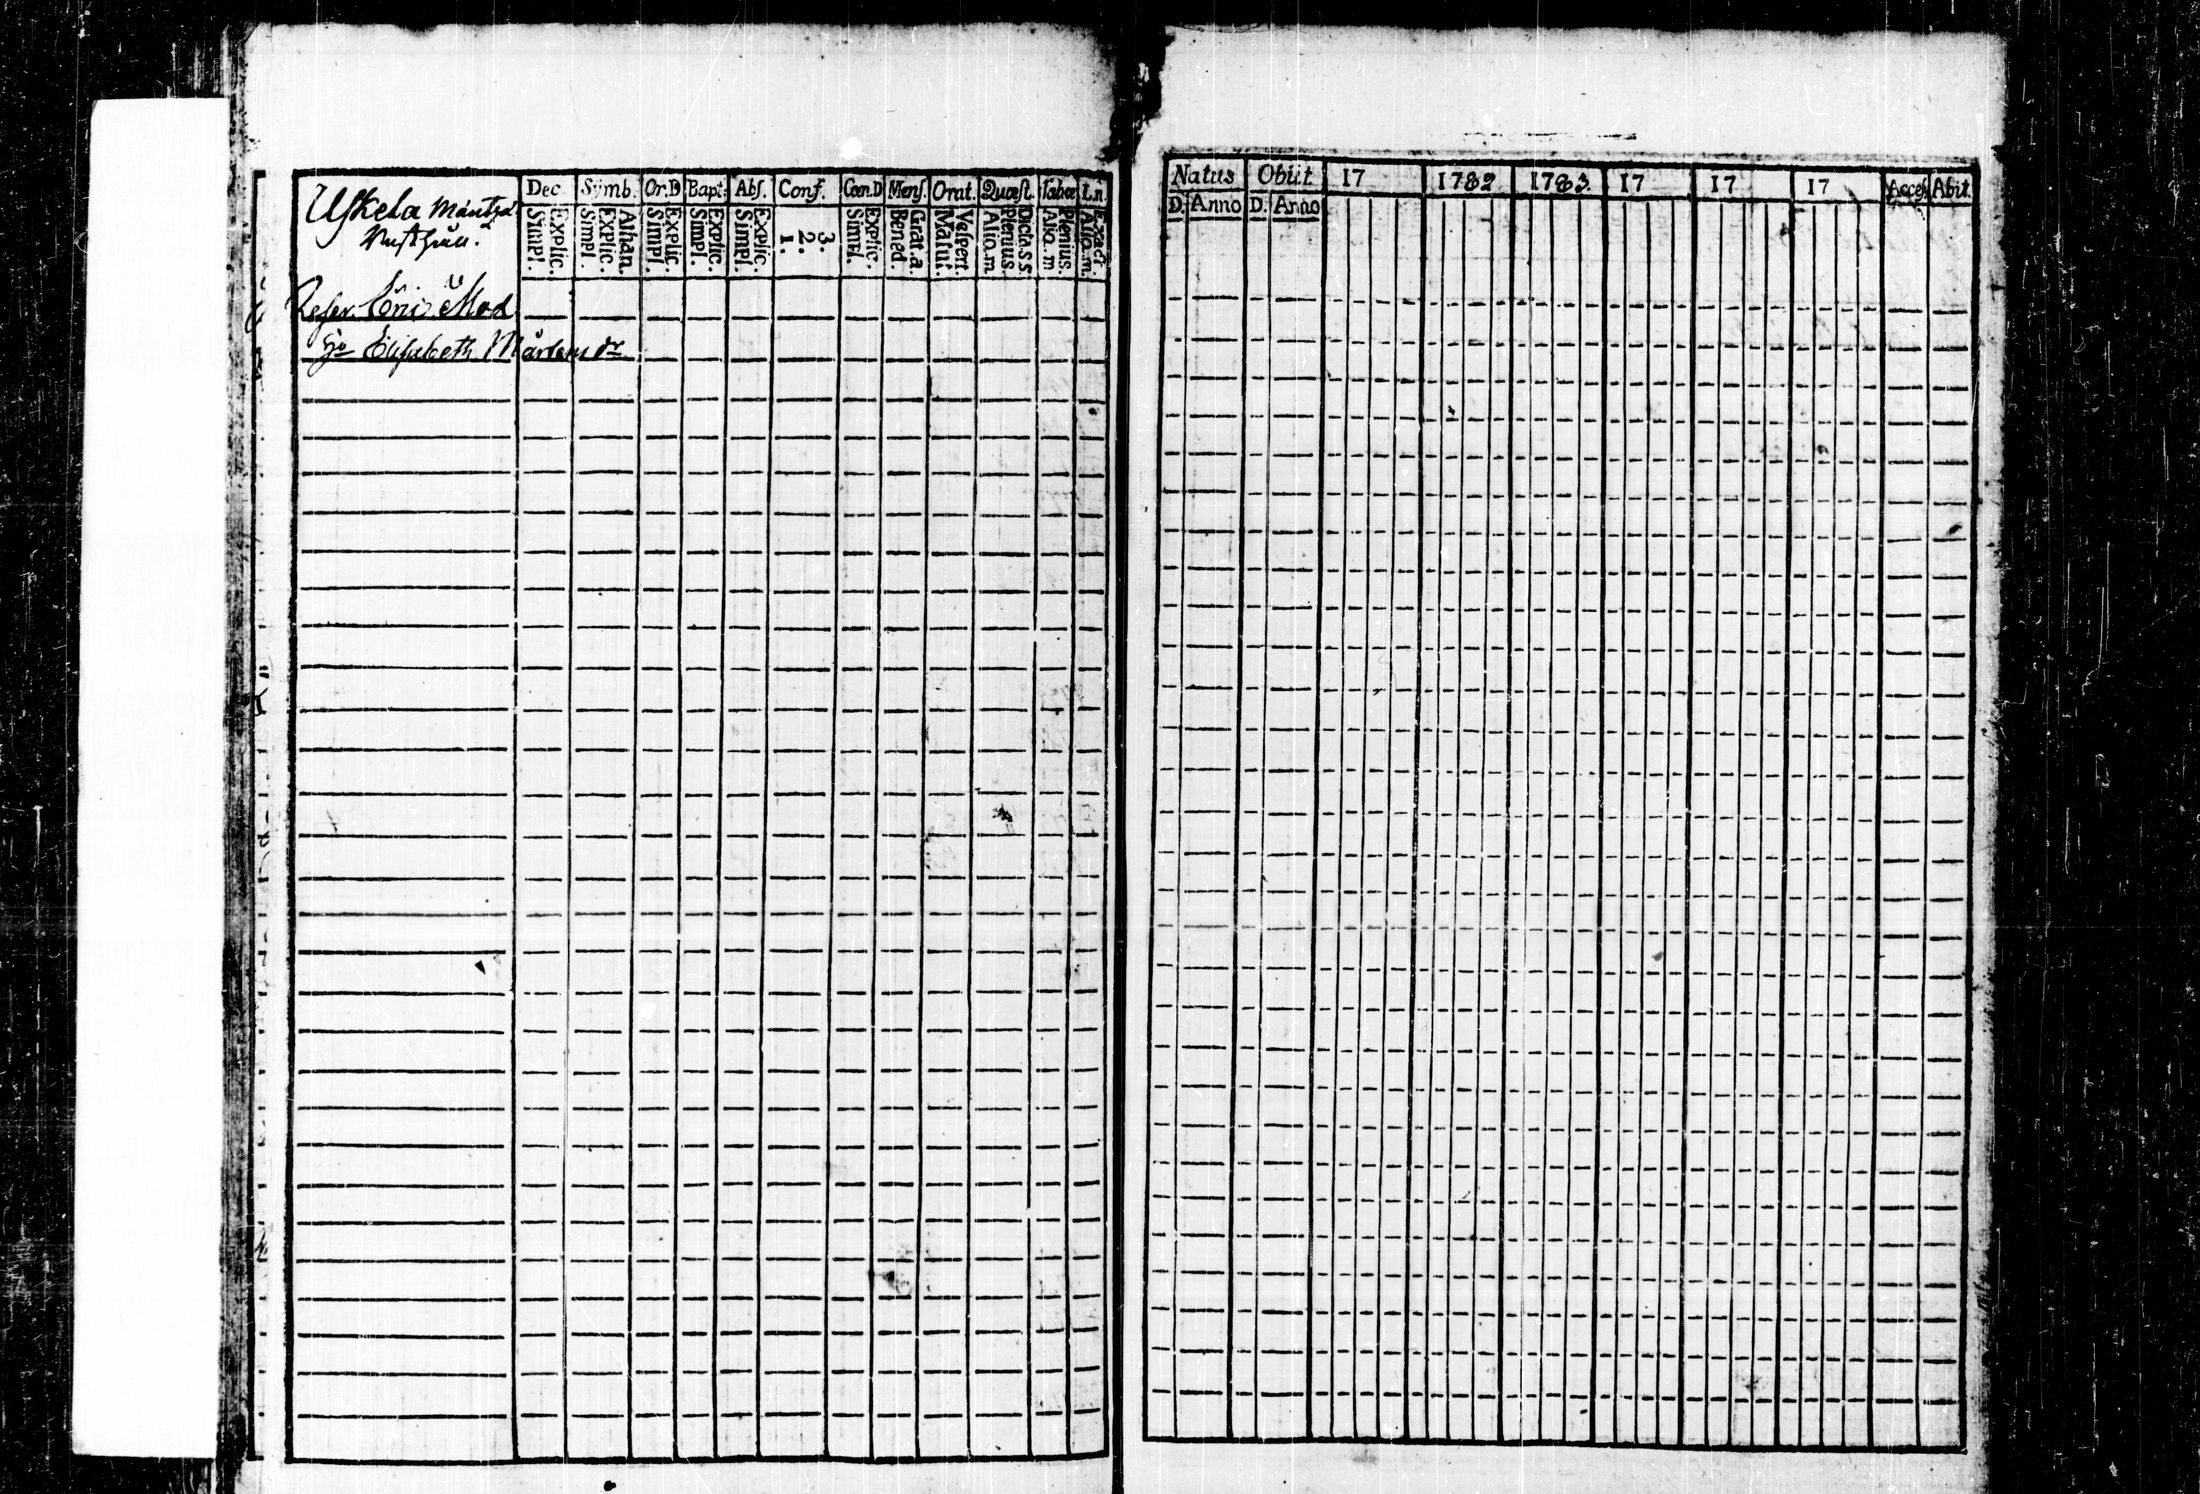 Uskela Mäntzä
Dec. Symb. Or.D Bapt. Abs. Conf. Cœn.D Mens. Orat. Quæst. Tabœ L.n.
Explic. Simpl. Athan. Explic. Simpl. Explic. Simpl. Explic. Simpl. Explic. Simpl. 3. 2. 1. Explic. Simpl. Grat.a. Bened. Vespert. Matut. Dicta.s.s. Plenius Alio.m. Plenius. Alio.m Exact. Alio.m.
Reserv.
Elisabeth Mårtens dr
Natus Obiit 17 1782 1783. 17 17 17 Acces. Abit.
D. Anno D. Anno